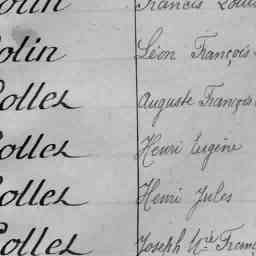 Francis Louis
olin Léon François
ollez Auguste François
ollez Henri Eugène
ollez Henri Jules
ollez Joseph Mie